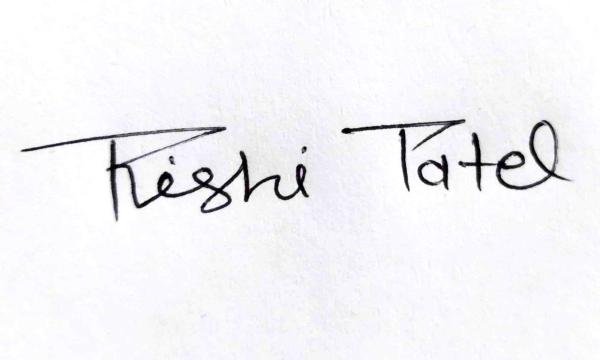 Rishi Patel